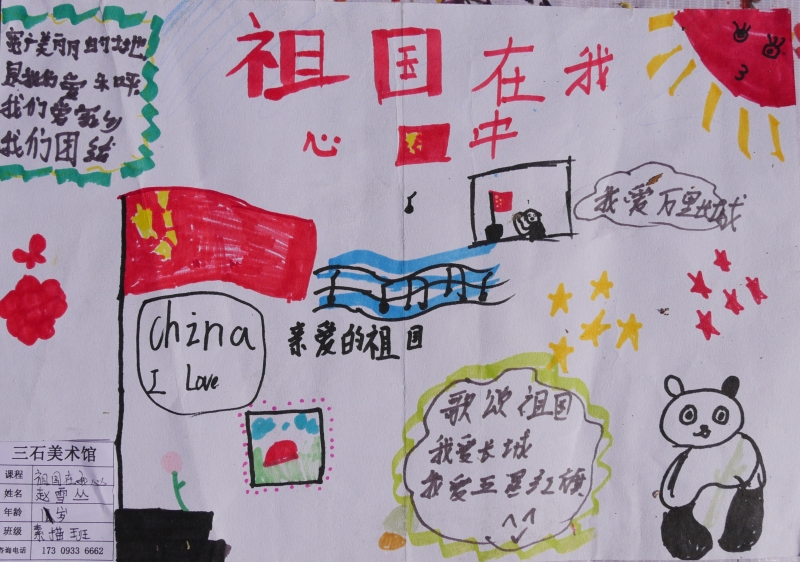 祖国在我
心中
我们爱家乡
我们团结
我爱万里长城
China
I Love
亲爱的祖国
歌颂祖国
我爱长城
我爱五星红旗
三石美术馆
课程 祖国在我心
姓名 赵雪丛
年龄 岁
班级 素描班
咨询电话 173 0933 6662